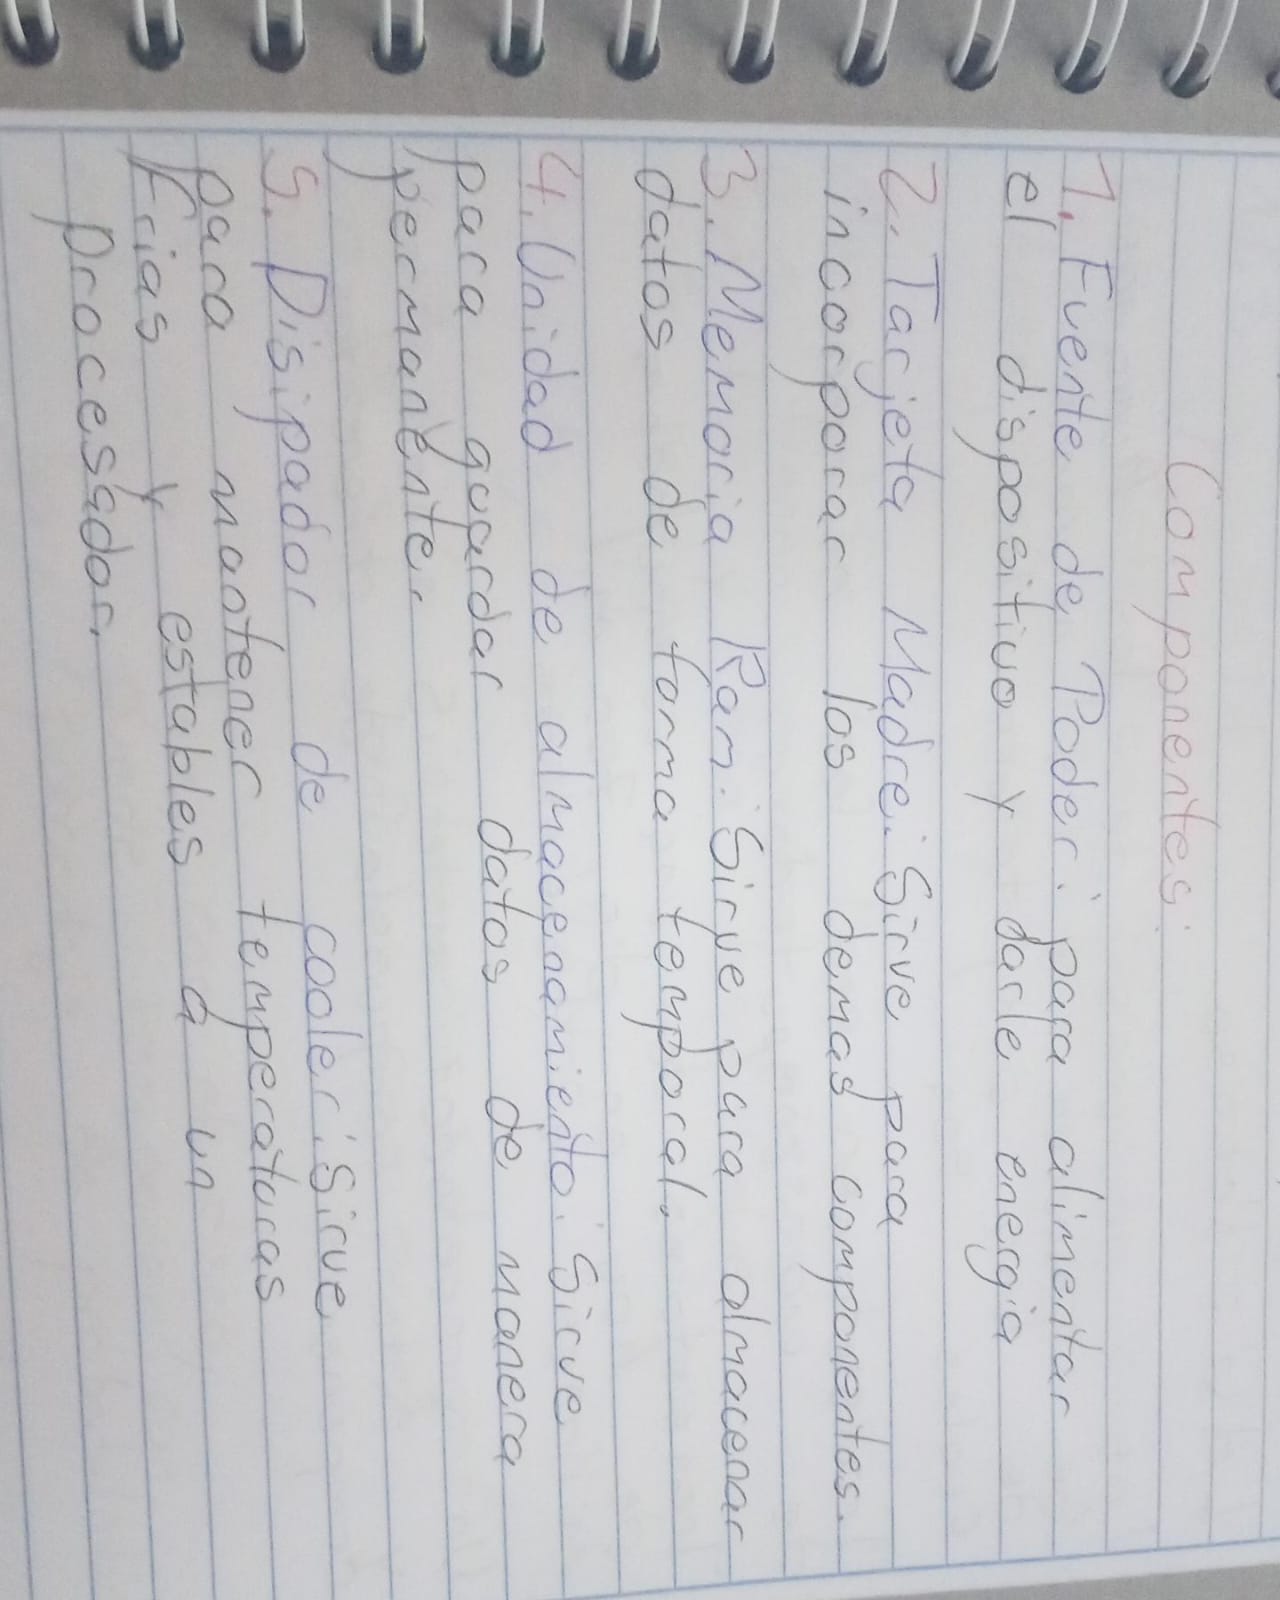 Componentes:
1. Fuente de Poder: para alimentar
el dispositivo y darle energia
2. Tarjeta Madre: Sirve para
incorporar los demas componentes.
3. Memoria Ram: Sirve para almacenar
datos de forma temporal.
4. Unidad de almacenamiento: Sirve
para guardar datos de manera
permanente.
5. Disipador de cooler: Sirve
para mantener temperaturas
frias y estables a un
procesador.